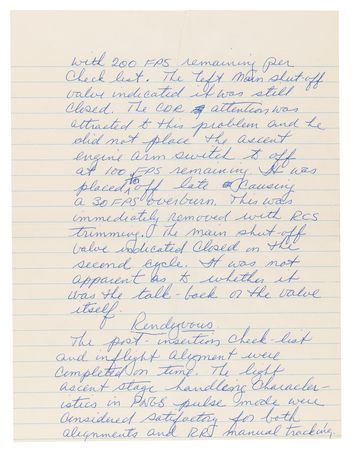 with 200 FPS remaining per
check list. The left main shut off
valve indicated it was still
closed. The CDR attention was
attracted to this problem and he
did not place the ascent
engine arm switch to off
at 100 FPS remaining. It was
placed to off late causing
a 30 FPS overburn. This was
immediately removed with RCS
trimming. The main shut off
valve indicated closed on the
second cycle. It was not
apparent as to whether it
was the talk-back or the valve
itself.
Rendezvous
The post-insertion check-list
and inflight alignment were
completed on time. The light
ascent stage handling character-
istics in PNGS pulse mode were
considered satisfactory for both
alignments and RR manual tracking.